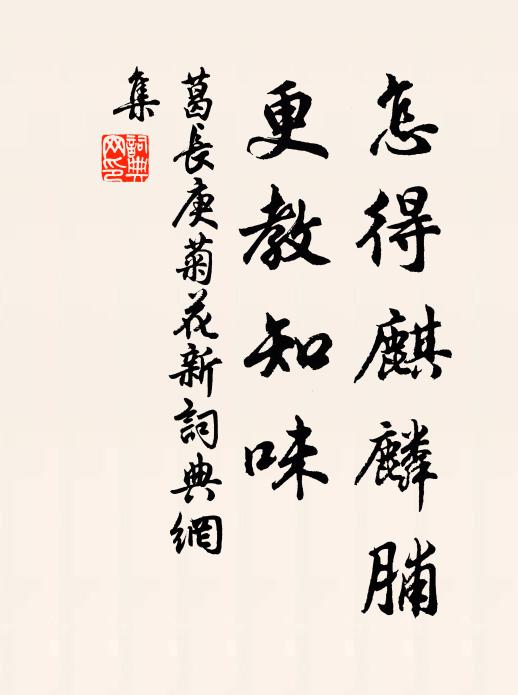 怎得麒麟脯
更教知味
葛長庚菊花新詞典網
集
詞典
网印